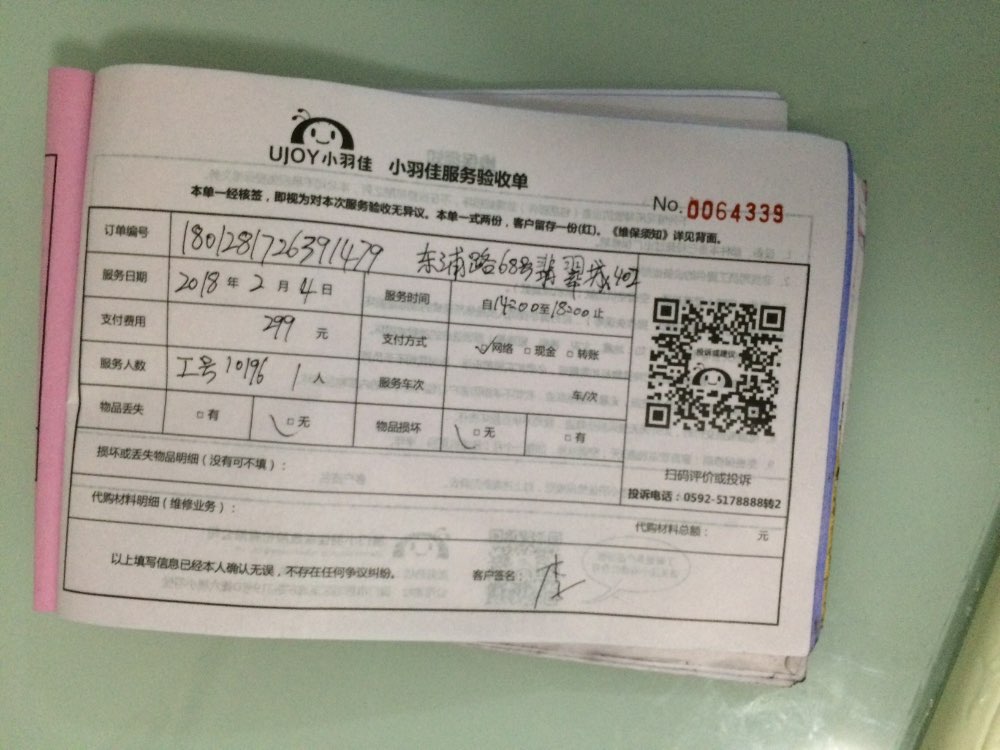 UJOY小羽佳 小羽佳服务验收单
No. 0064339
本单一经核签，即视为对本次服务验收无异议。本单一式两份，客户留存一份(红)。《维保须知》详见背面。
订单编号 18012817263911479 东浦路68号翡翠城402
服务日期 2018 年 2 月 4 日 服务时间 自14:00至18:00止
支付费用 299 元 支付方式 ☑网络 □现金 □转账
服务人数 工号10196 1人 服务车次 车/次
物品丢失 □有 ☑无 物品损坏 ☑无 □有
投诉或建议
扫码评价或投诉
投诉电话：0592-5178888转2
损坏或丢失物品明细（没有可不填）：
代购材料明细（维修业务）： 代购材料总额： 元
以上填写信息已经本人确认无误，不存在任何争议纠纷。 客户签名： 李